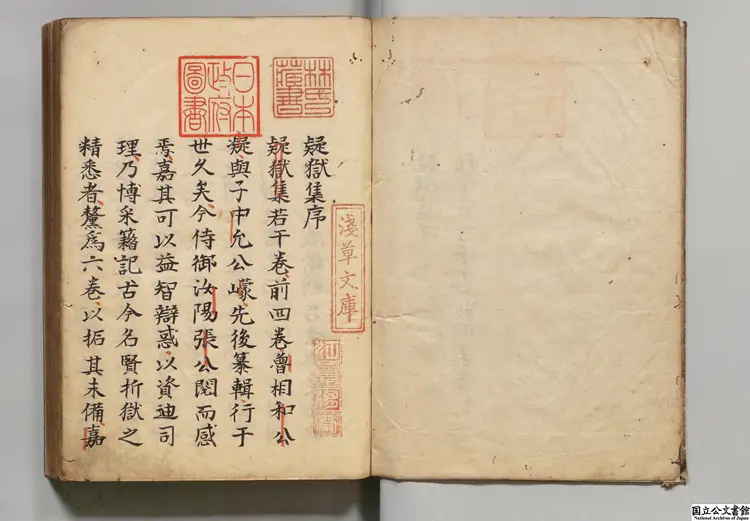 疑獄集序
疑獄集若干卷前四卷曾相和公
疑與子中允公㠓先後纂輯行于
世久矣今侍御汝陽張公閱而感
焉嘉其可以益智辯惑以資廸司
理乃博采籍記古今名賢折獄之
精悉者釐爲六卷以拓其未備嘉
林氏藏書
日本政府圖書
淺草文庫
国立公文書館
National Archives of Japan